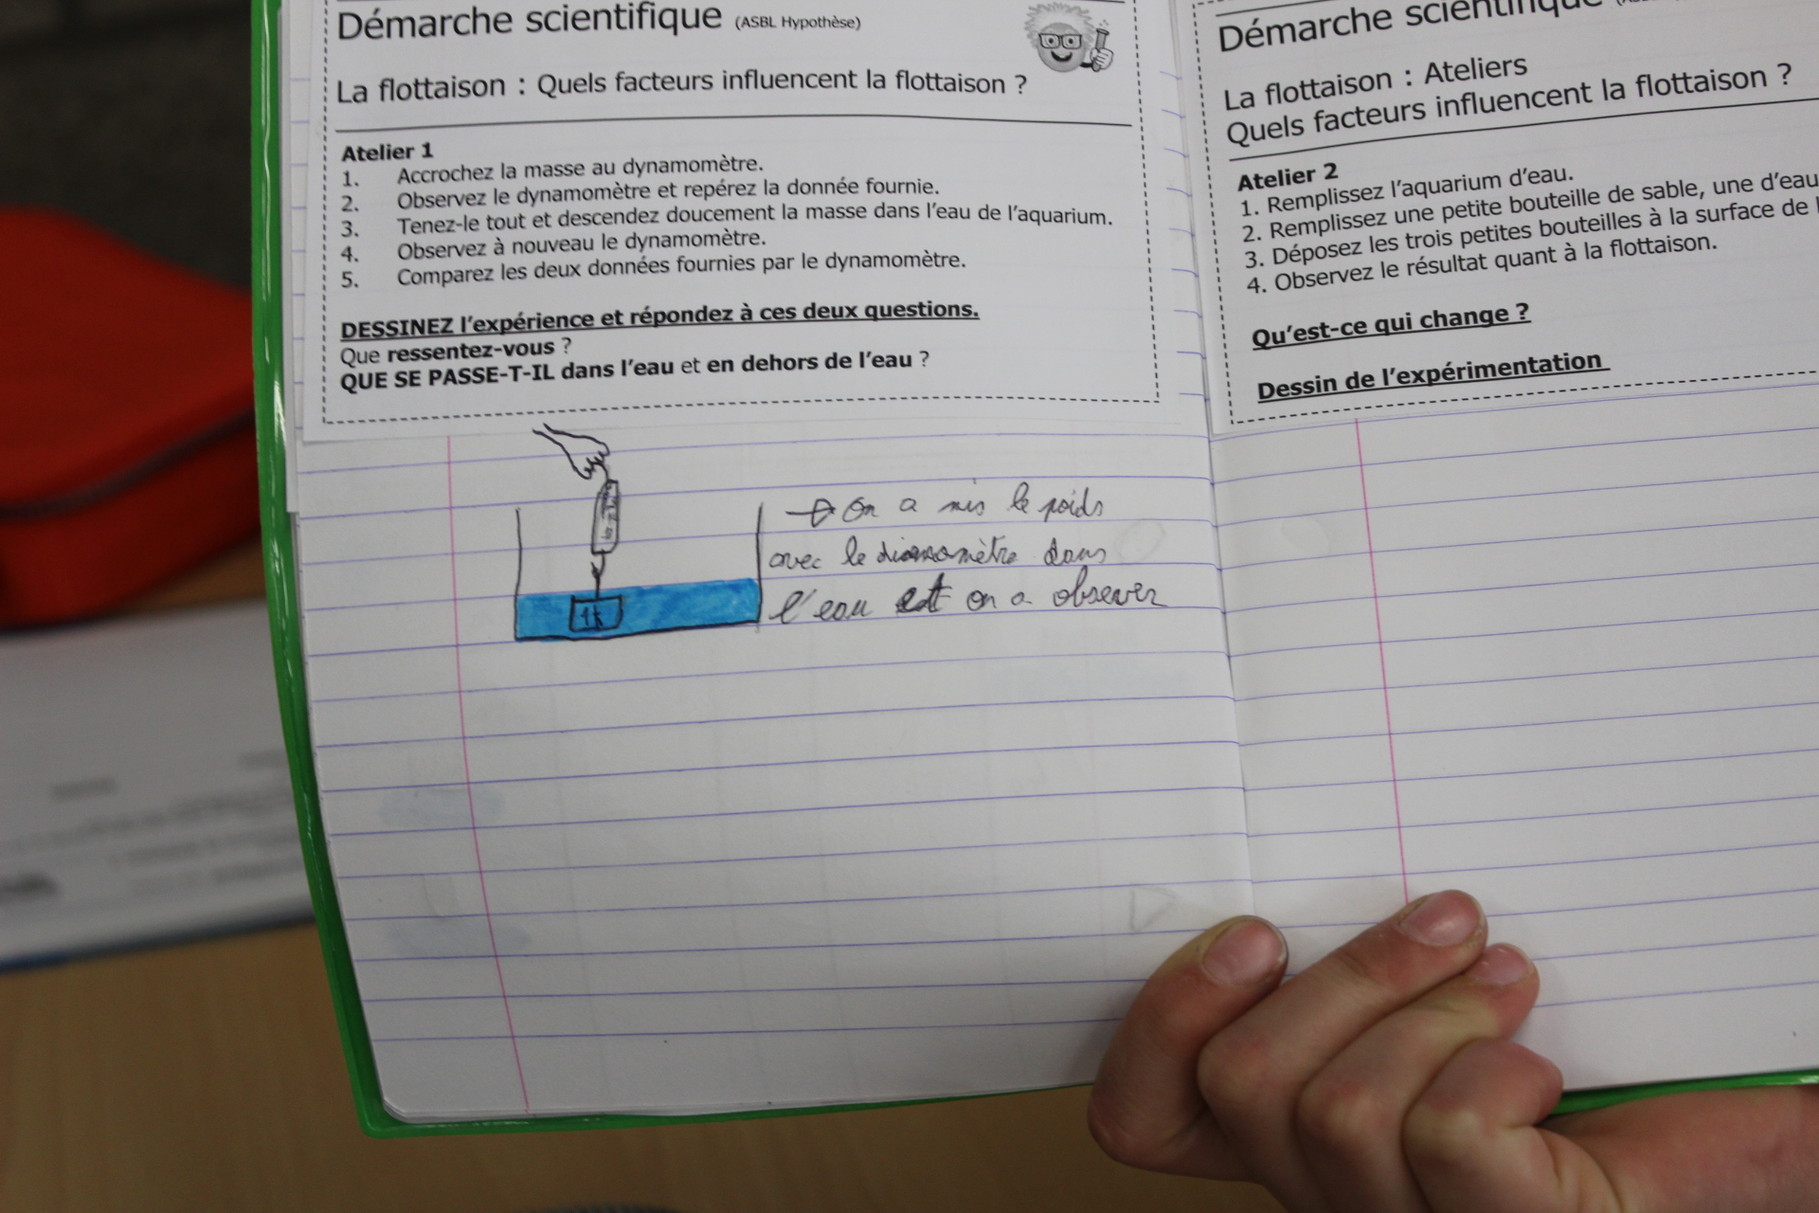 Démarche scientifique (ASBL Hypothèse)
La flottaison : Quels facteurs influencent la flottaison ?
Atelier 1
1. Accrochez la masse au dynamomètre.
2. Observez le dynamomètre et repérez la donnée fournie.
3. Tenez-le tout et descendez doucement la masse dans l'eau de l'aquarium.
4. Observez à nouveau le dynamomètre.
5. Comparez les deux données fournies par le dynamomètre.
DESSINEZ l'expérience et répondez à ces deux questions.
Que ressentez-vous ?
QUE SE PASSE-T-IL dans l'eau et en dehors de l'eau ?
→ On a mis le poids
avec le dans
l'eau et on a observer
Démarche scientifique
La flottaison : Ateliers
Quels facteurs influencent la flottaison ?
Atelier 2
1. Remplissez l'aquarium d'eau.
2. Remplissez une petite bouteille de sable, une d'eau
3. Déposez les trois petites bouteilles à la surface de
4. Observez le résultat quant à la flottaison.
Qu'est-ce qui change ?
Dessin de l'expérimentation